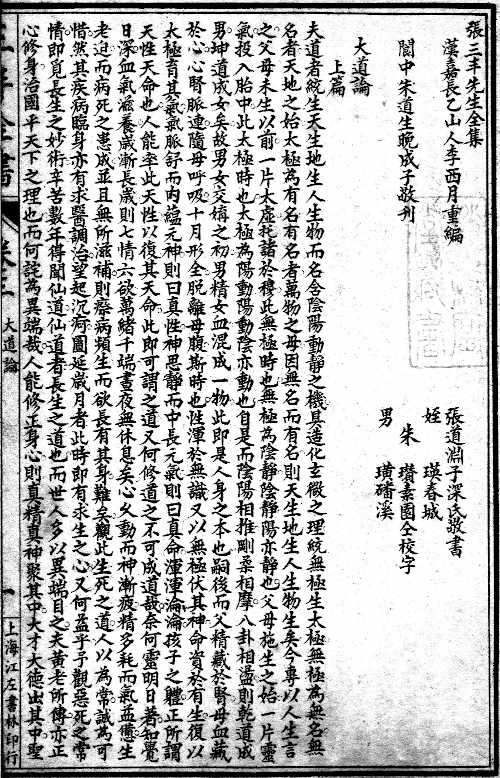 張三丰先生全集
漢嘉長乙山人李西月重編
閬中朱道生晚成子敬刊
張道淵子深氏敬書
姪 瑛春城
朱 瓚素園仝校字
男 璜磻溪
大道論
上篇
夫道者統生天地生人生物而名含陰陽動靜之機具造化玄微之理統無極生太極無極為無名無
名者天地之始太極為有名有名者萬物之母因無名而有名則天生地生人生物生矣今專以人生言
之父母未生以前一片太虛托諸於穆此無極時也無極為陰靜陰靜陽亦靜也父母施生之始一片靈
氣投入胎中此太極時也太極為陽動陽動陰亦動也自是而陰陽相推剛柔相摩八卦相盪則乾道成
男坤道成女矣故男女交媾之初男精女血混成一物此即是人身之本也嗣後而父精藏於腎母血藏
於心心腎脈連隨母呼吸十月形全脫離母腹斯時也性渾於無識又以無極伏其神命資於有生復以
太極育其氣氣脈舒而內蘊元神則曰真性神思靜而中長元氣則曰真命渾渾淪淪孩子之體正所謂
天性天命也人能率此天性以復其天命此即可謂之道又何修道之不可成道哉奈何靈明日著知覺
日深血氣滋養歲漸長歲則七情六欲萬緒千端晝夜無休息矣心久動而神漸疲精多耗而氣益憊生
老迫而病死之患成並且無所滋補則瘵病頻生而欲長有其身難矣觀此生死之道人以為常誠為可
惜然其疾病臨身亦有求醫調治望起沉疴圖延歲月者此時即有求生之心又何益乎予觀惡死之常
情即覓長生之妙術辛苦數年得聞仙道仙道者長生之道也而世人多以異端目之夫黃老所傳亦正
心修身治國平天下之理也而何詫為異端哉人能修正身心則真精真神聚其中大才大德出其中聖
三丰全書 卷三 大道論 一 上海江左書林印行